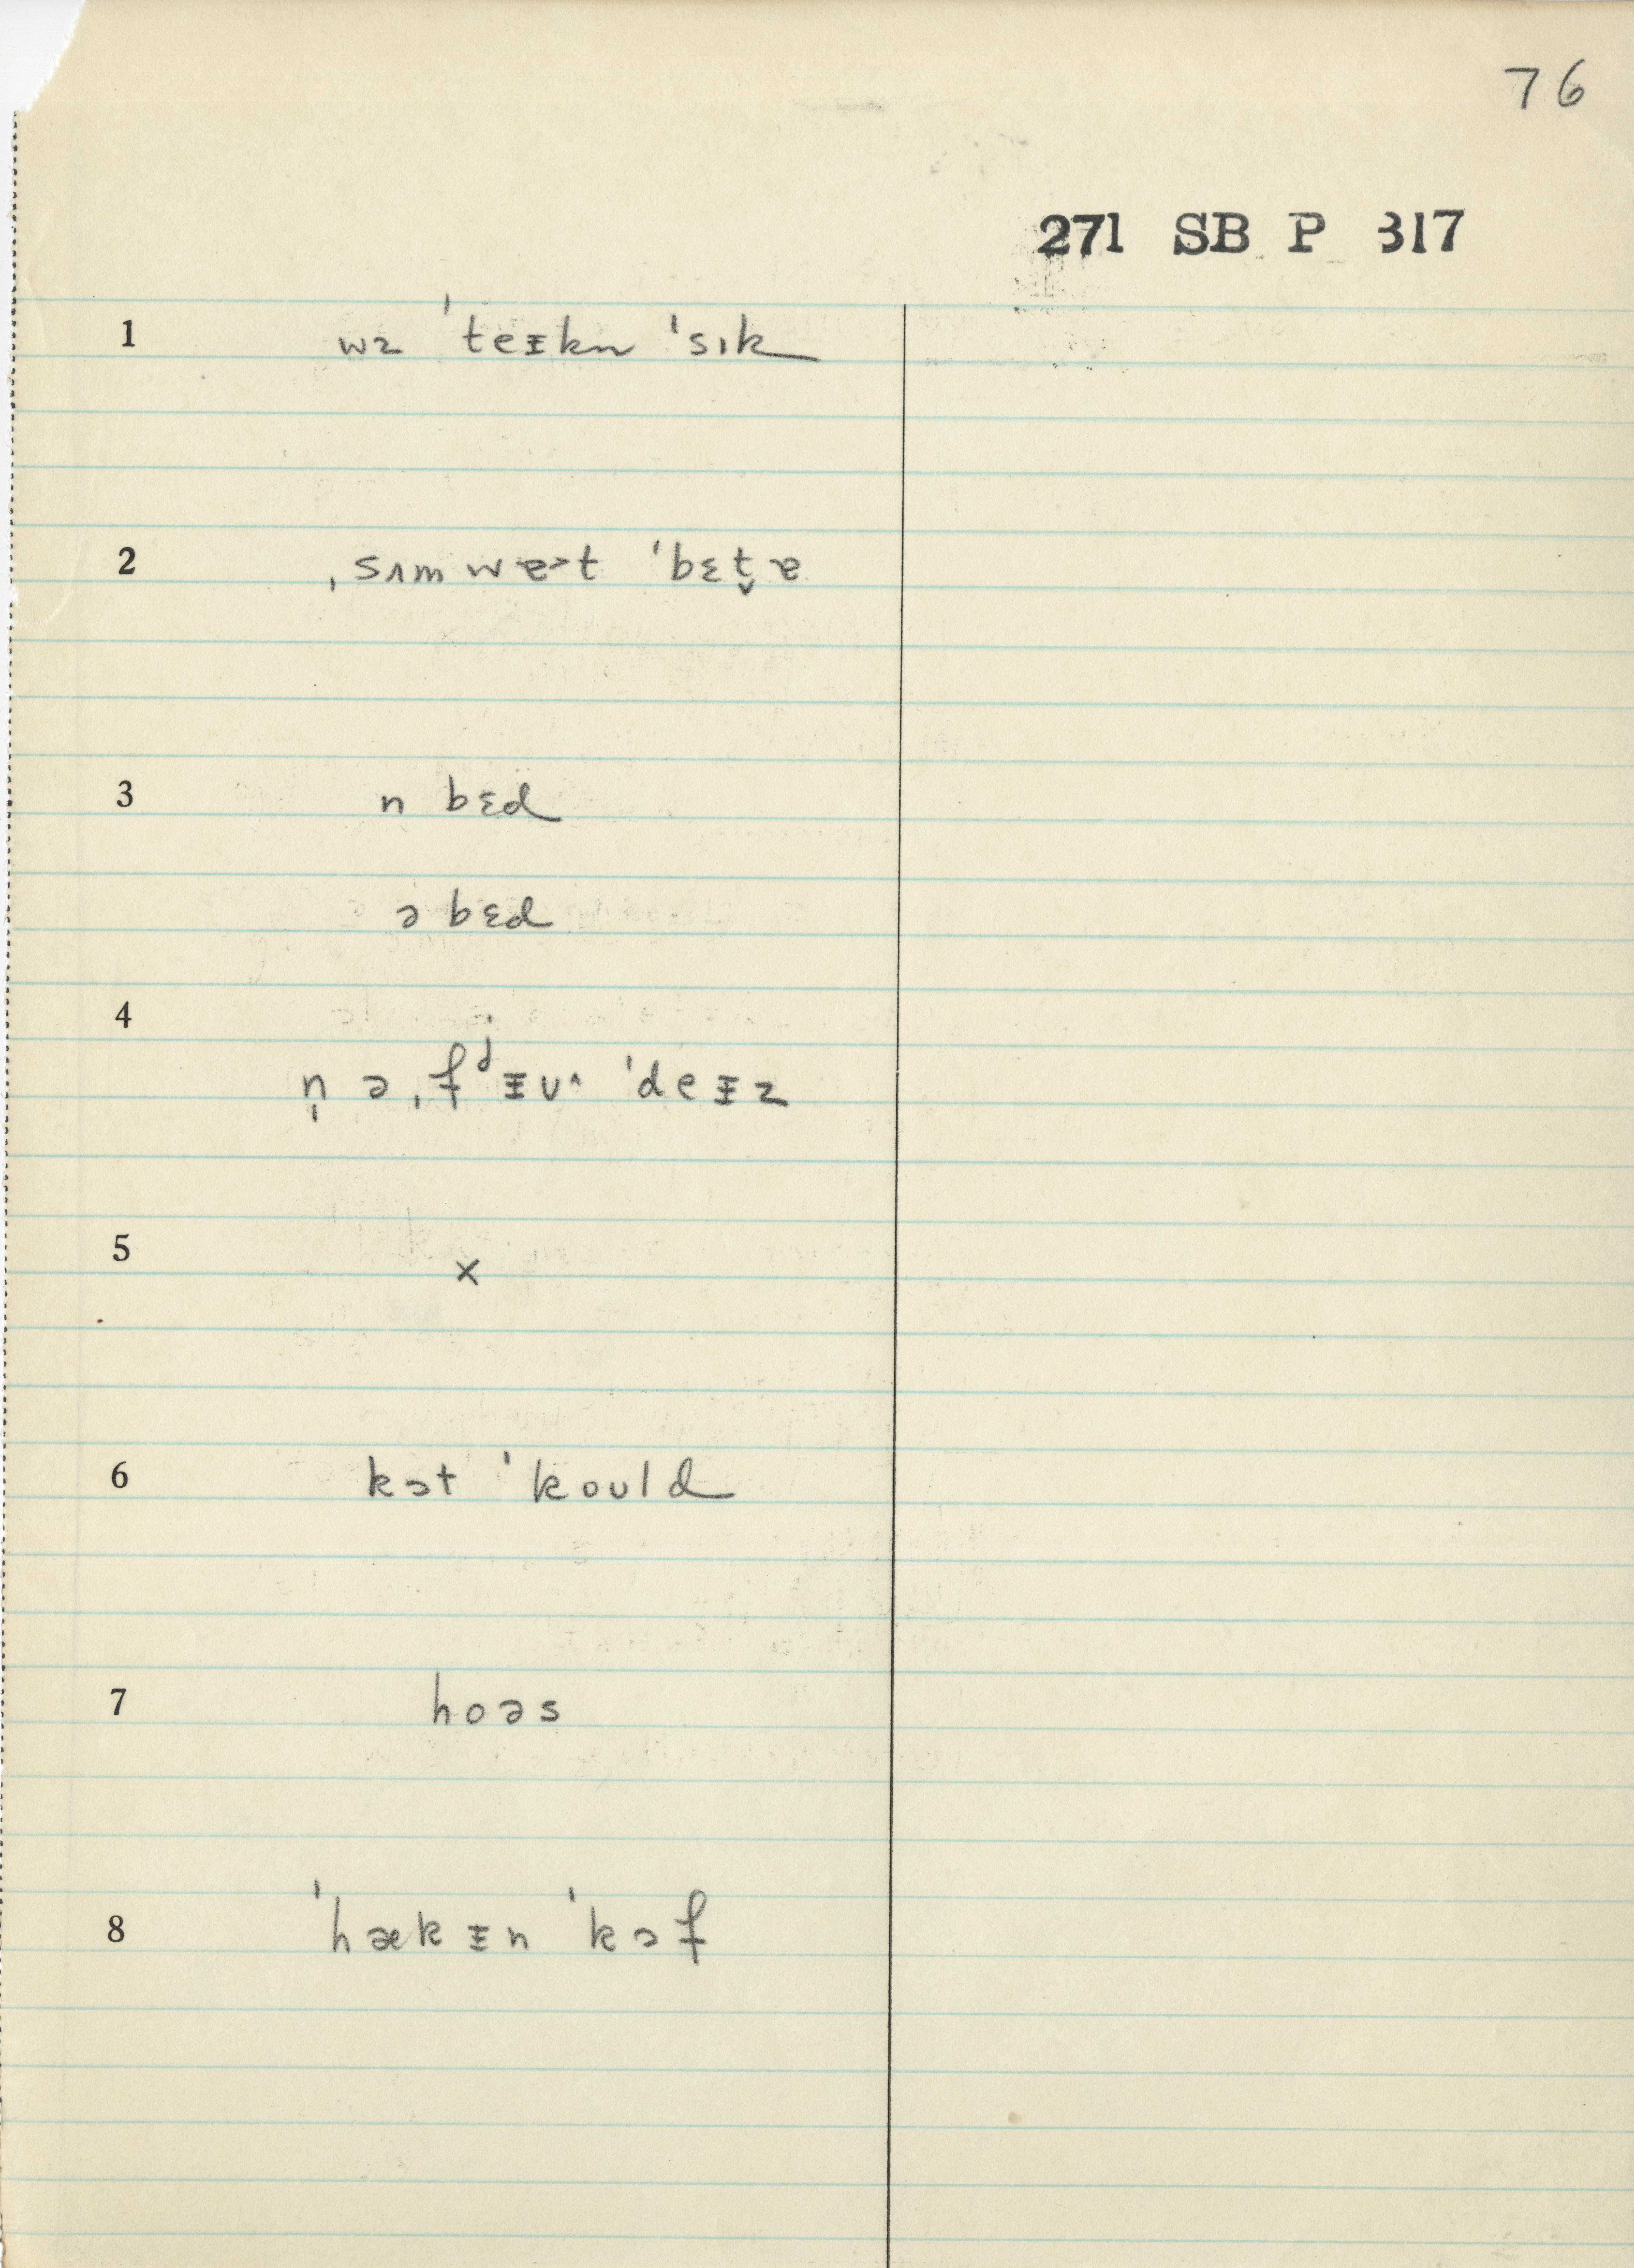 76
271 SB P 317
1 wɜ ˈteᵻkn ˈsɪk
2 ˌsʌmwɐ˃t ˈbɛt̬ɐ
3 n bɛd
ə bɛd
4 n̩ ə ˌfʲᵻʊ^ ˈdeᵻz
5 ×
6 kɔt ˈkould
7 hoəs
8 ˈhækᵻn ˈkɔf